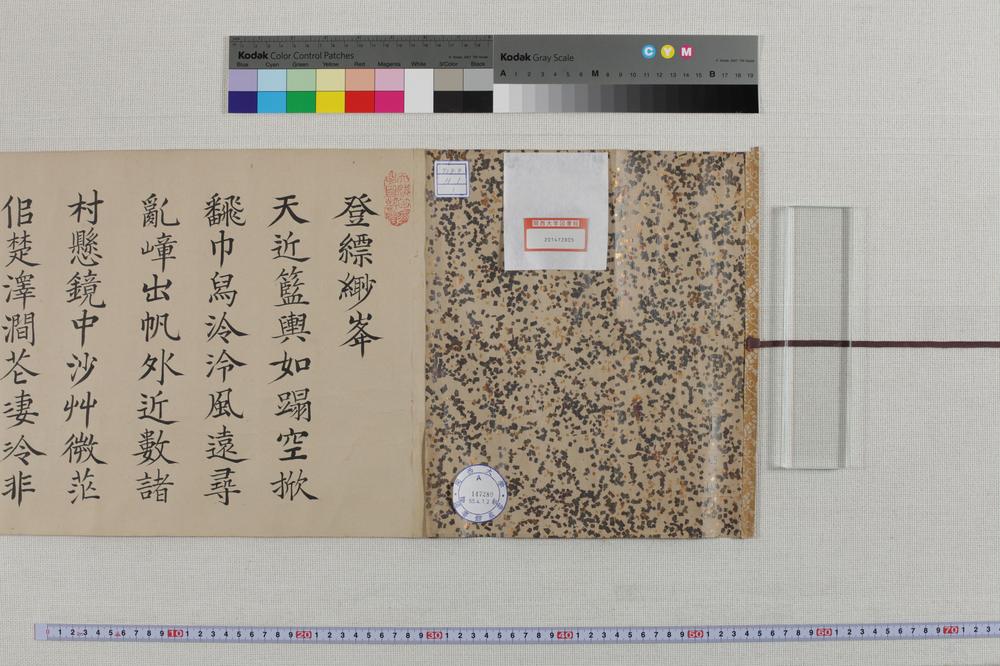 Kodak Color Control Patches
Blue Cyan Green Yellow Red Magenta White 3/Color Black
Kodak Gray Scale
C Y M
A 1 2 3 4 5 6 M 8 9 10 11 12 13 14 15 B 17 18 19
登縹緲峯
天近籃輿如蹋空掀
翻巾舃泠泠風遠尋
亂嶂出帆外近數諸
村懸鏡中沙艸微茫
侶楚澤澗芲淒泠非
関西大学図書館
201472805
A
147280
1 2 3 4 5 6 7 8 9 10 1 2 3 4 5 6 7 8 9 20 1 2 3 4 5 6 7 8 9 30 1 2 3 4 5 6 7 8 9 40 1 2 3 4 5 6 7 8 9 50 1 2 3 4 5 6 7 8 9 60 1 2 3 4 5 6 7 8 9 70 1 2 3